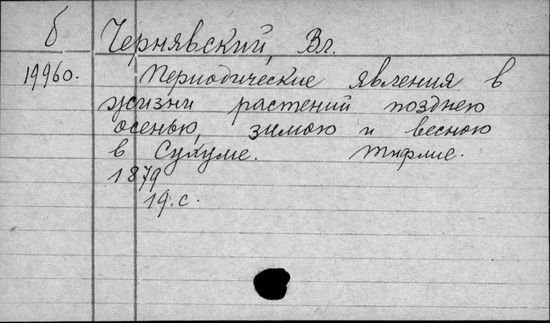 б Чернявский, Вл.
19960. Периодические явления в
жизни растений позднею
осенью, зимою и весною
в Сухуме. Тифлис.
1879
19.с.